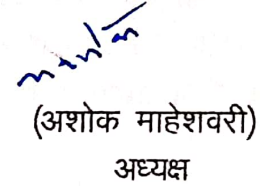 (अशोक माहेशवरी)
अध्यक्ष